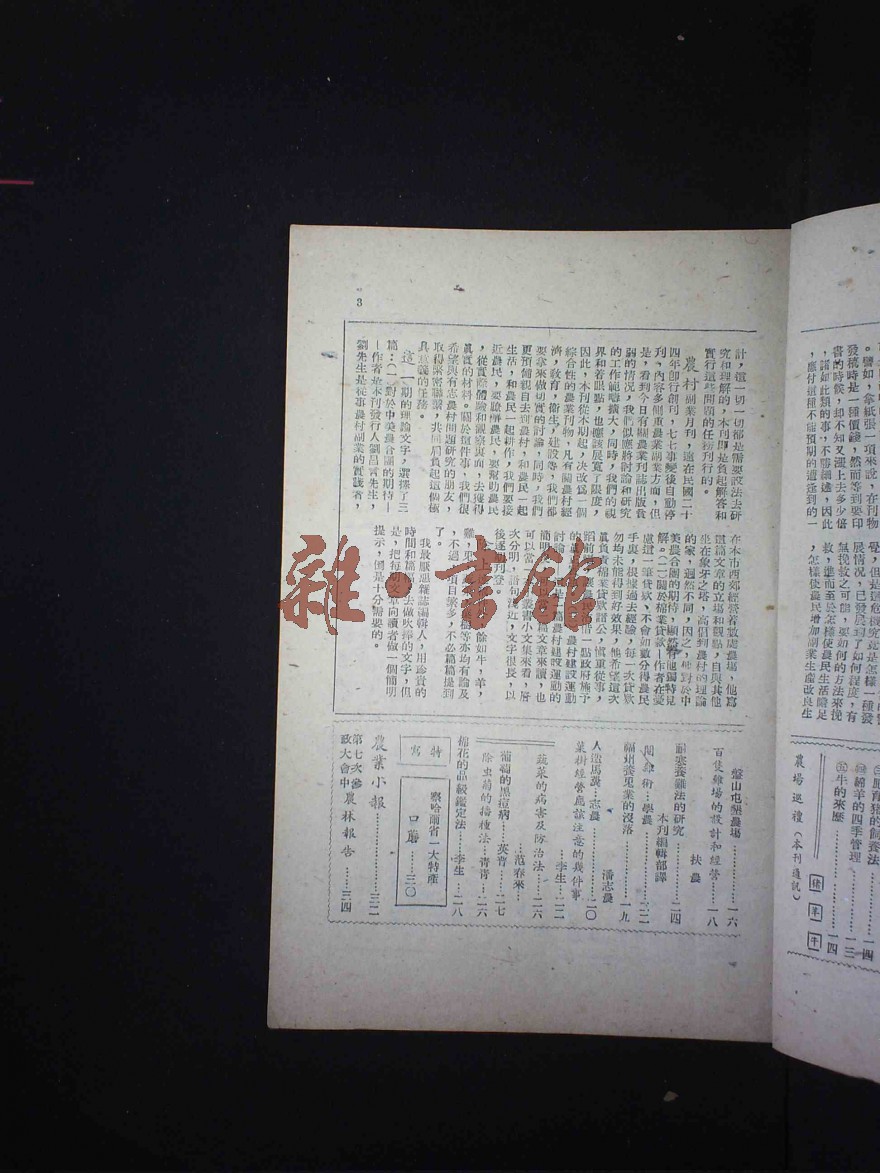 。譬如，拿紙張一項來說，在刊物
發稿時是一種價錢，然而等到要印
書的時候，却不知又漲上去多少倍
，諸如此類的事，不勝縷述，因此
，應付這種不能預期的遭逢到的一
覺，但是這危機究竟是怎樣一種發
展情况，已發展到了如何程度，有
無挽救之可能，要如何的方法來挽
救，進而至於怎樣使農民生活臻足
，怎樣使農民增加副業生產改良生
肥育豬的飼養法……一四
綿羊的四季管理……一三
牛的來歷……一四
豬 羊 牛
農場巡禮（本刊通訊）
3
計，這一切一切都是需要設法去研
究和理解的，本刊即是負起解答和
實行這些問題的任務刊行的。
農村副業月刊，遠在民國二十
四年創行創刊，七七事變後自動停
刊，內容多側重農業副業方面，但
是，看到今日有關農業刊誌出版貧
弱的情况，我們似應將討論和研究
的工作範疇擴大，同時，我們的視
界和着眼點，也應該展寬了限度，
因此，本刊從本期起，决改爲一個
綜合性的農業刊物，凡有關農村經
濟，敎育，衛生，建設等，我們都
要拿來做切實的討論，同時，我們
更預備親自去到農村，和農民一起
生活，和農民一起耕作，我們要接
近農民，要瞭解農民，要幫助農民
，從實際體驗和觀察裏面，去獲得
眞實的材料。關於這件事，我們很
希望與有志農村問題研究的朋友，
取得緊密聯繫，共同肩負起這個極
具意義的任務。
這一期的理論文字，選擇了三
篇：（一）對於中美農合團的期待—
—作者是本刊發行人劉呂言先生，
劉先生是從事農村副業的實踐者，
在本市西郊經營着數處農場，他寫
這篇文章的立場和觀點，自與其他
坐在象牙之塔，高倡到農村的理論
的家，迥然不同，因之，他對於中
美農合團的期待，頗富有他獨特見
解。（二）關於棉業貸款—作者在憂
慮這一筆貸款，不會如數分得農民
手裏，根據過去經驗，每一次貸款
勿均未能得到好效果，他希望這次
眞負責棉業貸款諸公，愼重從事，
簡明
可以當
次分明，語句淺近，文字很長，以
後逐期刊登。
不過，項目繁多，不必篇篇提到
了。
我最厭惡雜誌編輯人，用珍貴的
時間和篇幅，去做吹捧的文字，但
是，把每期文章向讀者做一個簡明
提示，倒是十分需要的。
盤山屯墾農場……一六
扶農
百隻雞場的設計和經營……一八
嚴寒養雞法的研究……二四
本刊編輯部譯
閹雞術…學農……二二
福州養兎業的沒落……一九
潘志農
人造馬糞…志農……二〇
菓樹經營應該注意的幾件事
李生……二二
蔬菜的病害及防治法……二六
范春來
葡萄的黑痘病……英普……二七
除虫菊的播種法…青青……二六
棉花的品級鑑定法……李生……二八
特寫
察哈爾省一大特產
口蘑……三〇
農業小報……三二
第七次參政大會中農林報告……三四
雜·書館